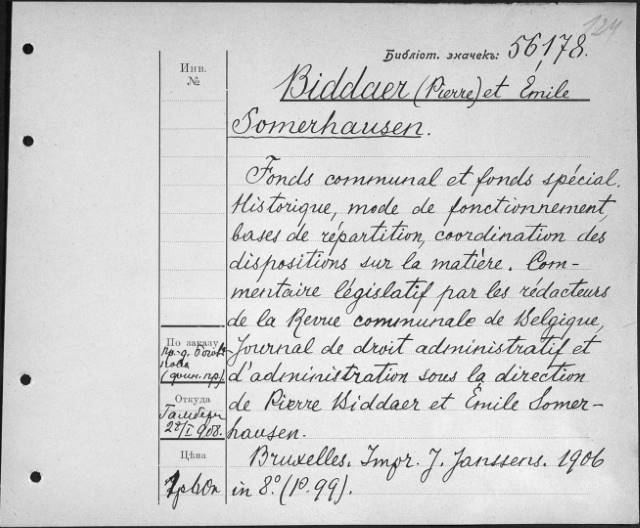 124
Библіот. значекъ: 56178.
Инв.
№
Biddaer (Pierre) et Émile
Somerhausen.
Fonds communal et fonds spécial.
Historique, mode de fonctionnement,
bases de répartition, coordination des
dispositions sur la matière. Com-
mentaire législatif par les rédacteurs
de la Revue communale de Belgique,
Journal de droit administratif et
d'administration sous la direction
de Pierre Biddaer et Émile Somer-
hausen.
Bruxelles. Impr. J. Janssens. 1906
in 8º (P. 99).
По заказу
(фин. пр)
Откуда
1908.
Цѣна